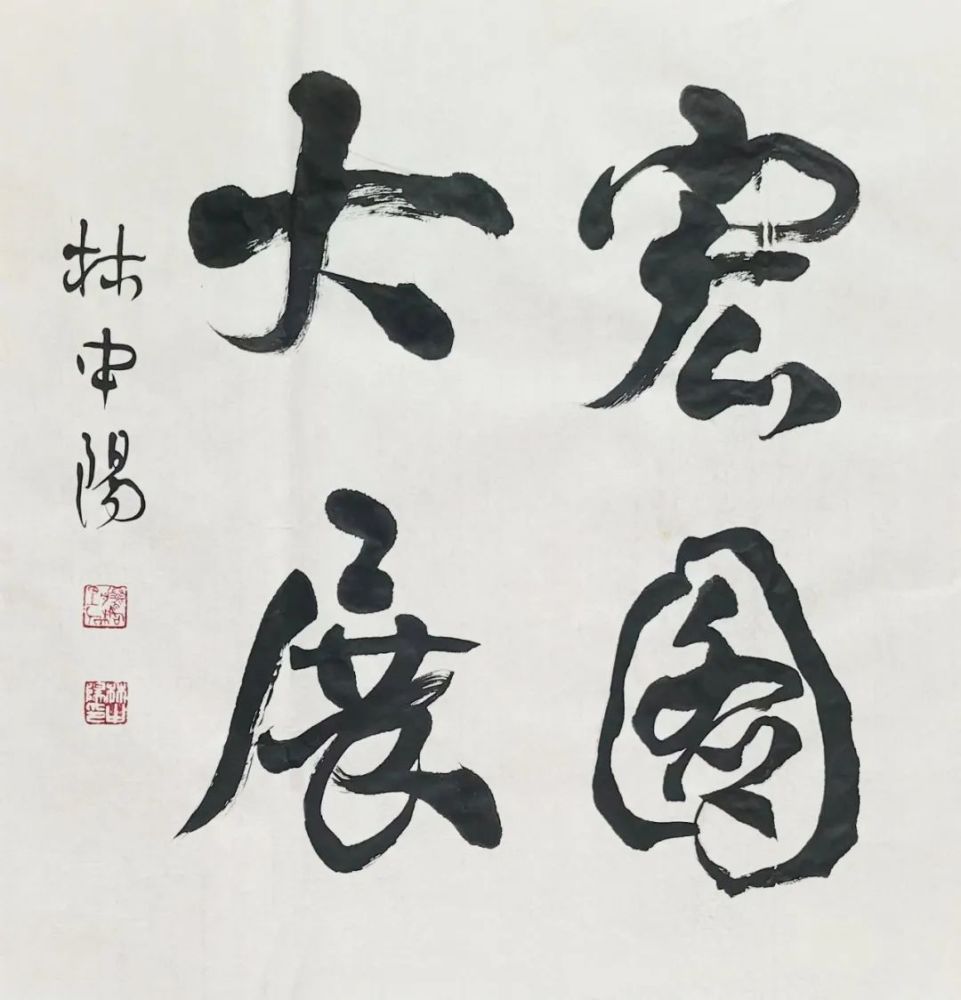 宏圖
大展
林中陽